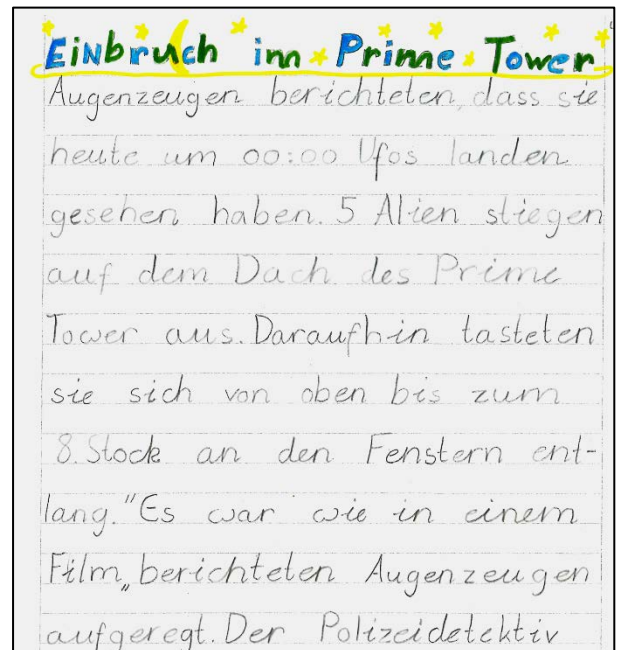 Einbruch im Prime Tower
Augenzeugen berichteten, dass sie
heute um 00:00 Ufos landen
gesehen haben. 5 Alien stiegen
auf dem Dach des Prime
Tower aus. Daraufhin tasteten
sie sich von oben bis zum
8. Stock an den Fenstern ent-
lang. "Es war wie in einem
Film„ berichteten Augenzeugen
aufgeregt. Der Polizeidetektiv